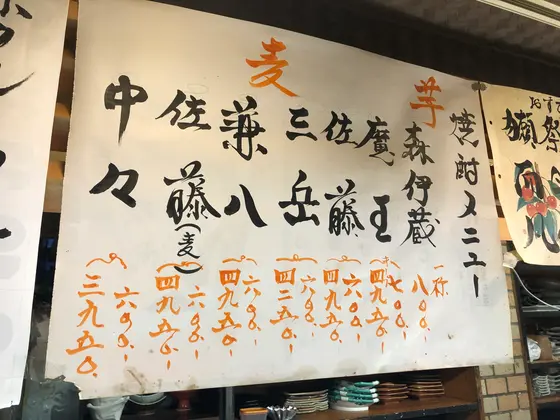 おすす
獺祭
焼酎メニュー
芋
森伊蔵
一杯
八〇〇.-
魔王
七〇〇.-
四九五〇.-
佐藤
六〇〇.-
四九五〇.-
三岳
六〇〇.-
四二五〇.-
麦
兼八
六〇〇.-
四九五〇.-
佐藤(麦)
六〇〇.-
四九五〇.-
中々
六〇〇.-
三九五〇.-